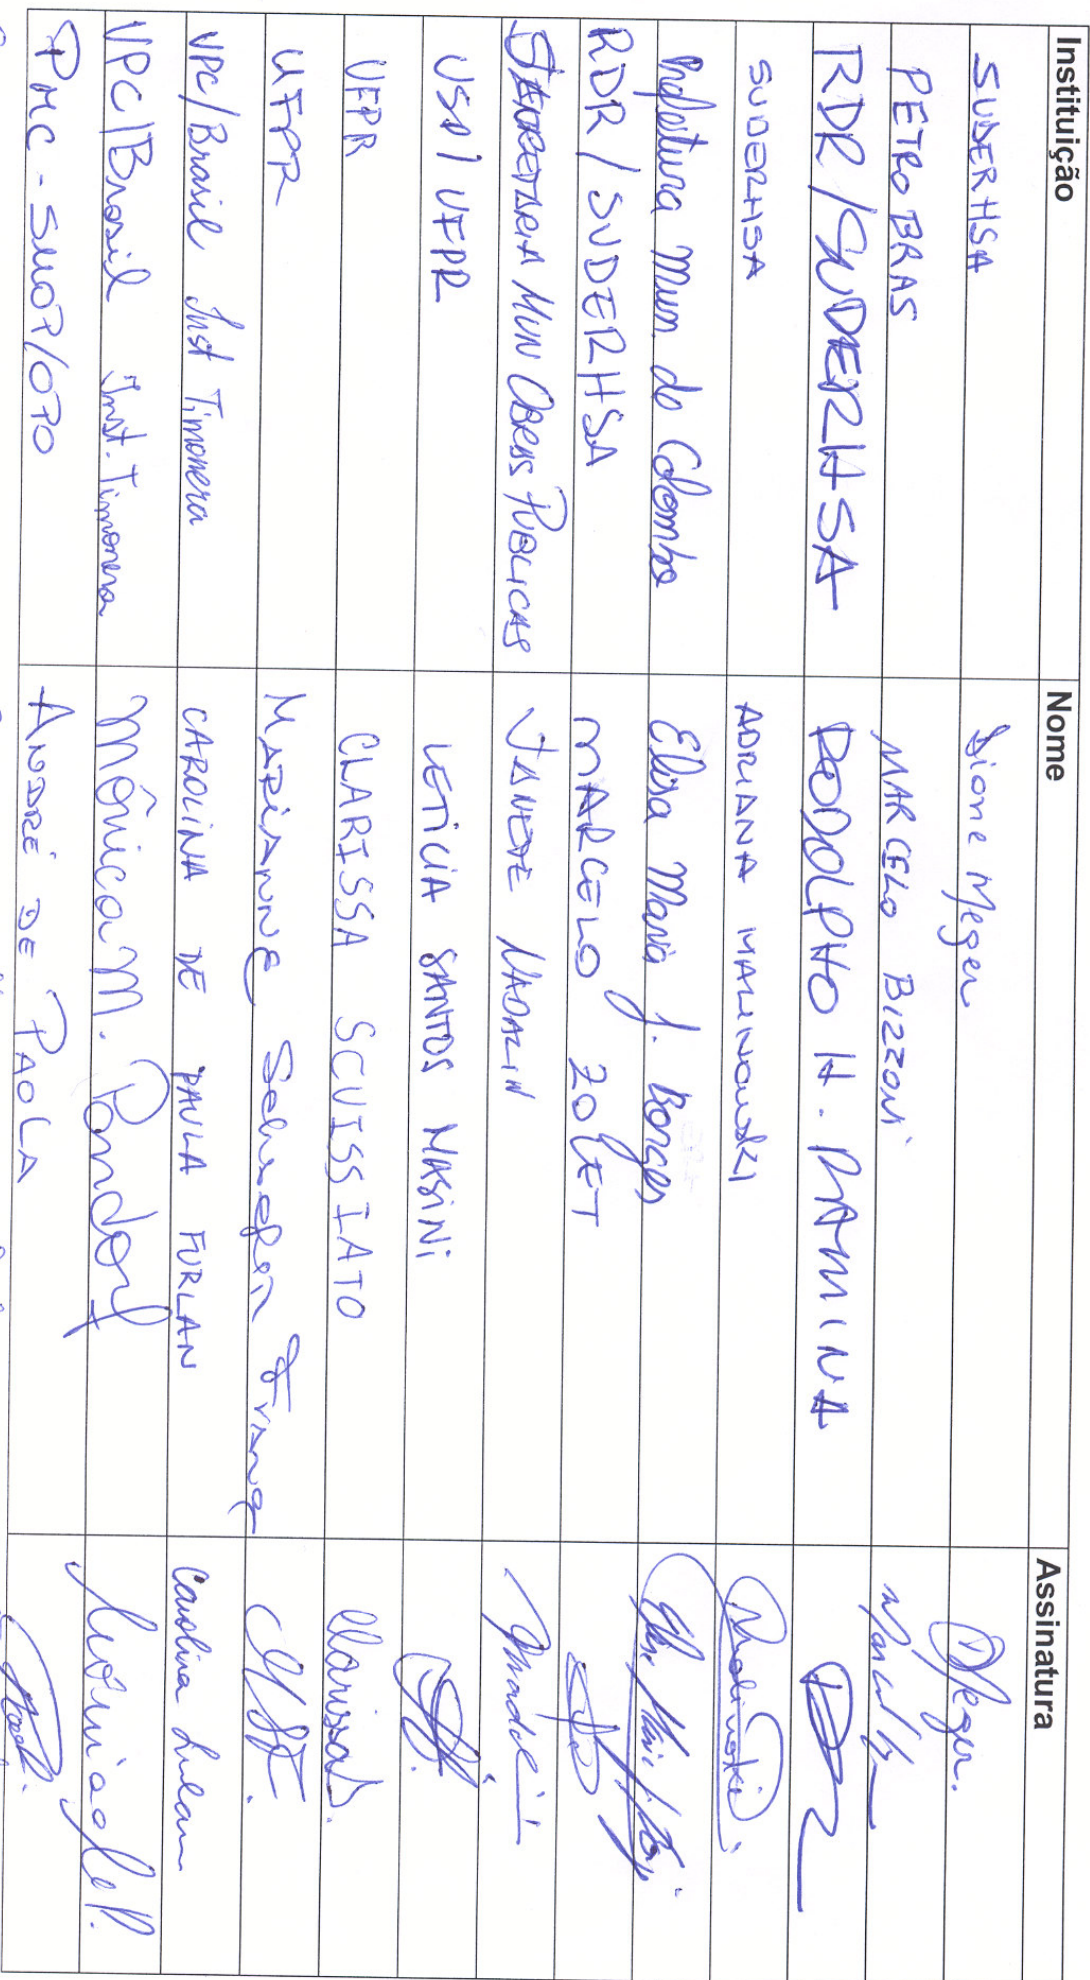 Instituição Nome Assinatura
SUDERHSA Dione Meger DMeger.
PETROBRAS MARCELO BIZZONI
RDR/SUDERHSA RODOLPHO H. RAMINA
SUDERHSA ADRIANA MALINOWSKI
Prefeitura Mun. de Colombo Elisa Maria J. Borges
RDR/SUDERHSA MARCELO ZOLET
SECRETARIA MUN OBRAS PUBLICAS JANETE NADALIN
USP/UFPR LETICIA SANTOS MASINI
UFPR CLARISSA SCUISSIATO ClarissaS.
UFPR MARIANNE Schaefer França MSF.
VPC/Brasil Inst Timonera CAROLINA DE PAULA FURLAN Carolina Furlan
VPC/Brasil Inst. Timonera Mônica M. Pondorf
PMC - SMOP/OPO ANDRÉ DE PAOLA